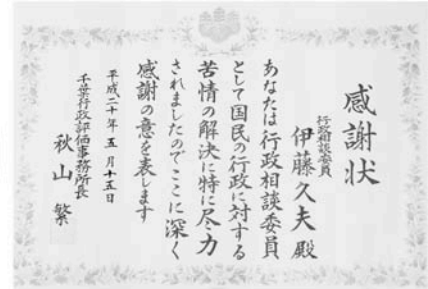 感謝状
行政相談委員
伊藤久夫殿
あなたは行政相談委員
として国民の行政に対する
苦情の解決に特に尽力
されましたのでここに深く
感謝の意を表します
平成二十年五月十五日
千葉行政評価事務所長
秋山繁